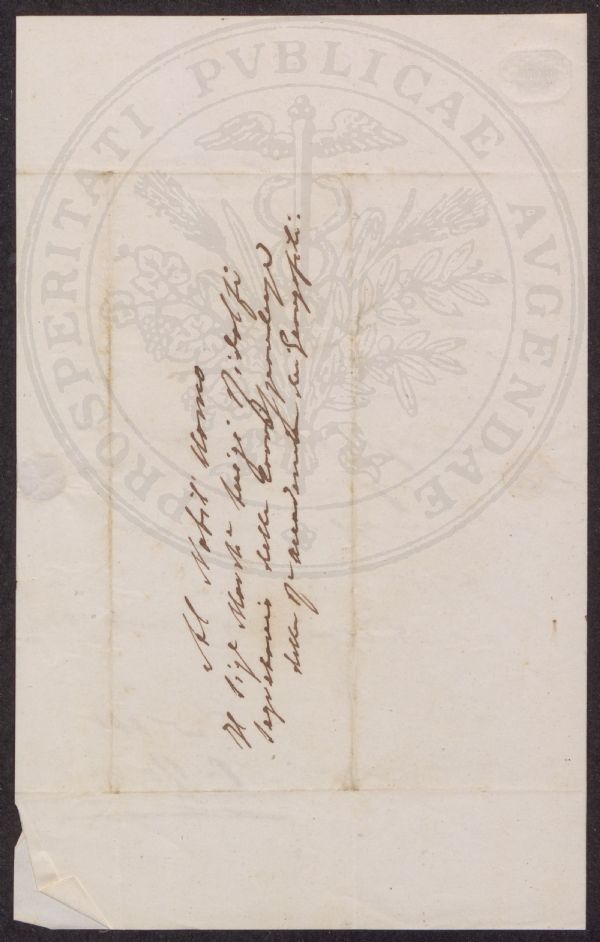 PROSPERITATI PVBLICAE AVGENDAE
Al Nobil Uomo
Il Sig.e March.e Luigi Ridolfi
Segretario delle Corrispondenze
della R.e Accademia dei Georgofili: